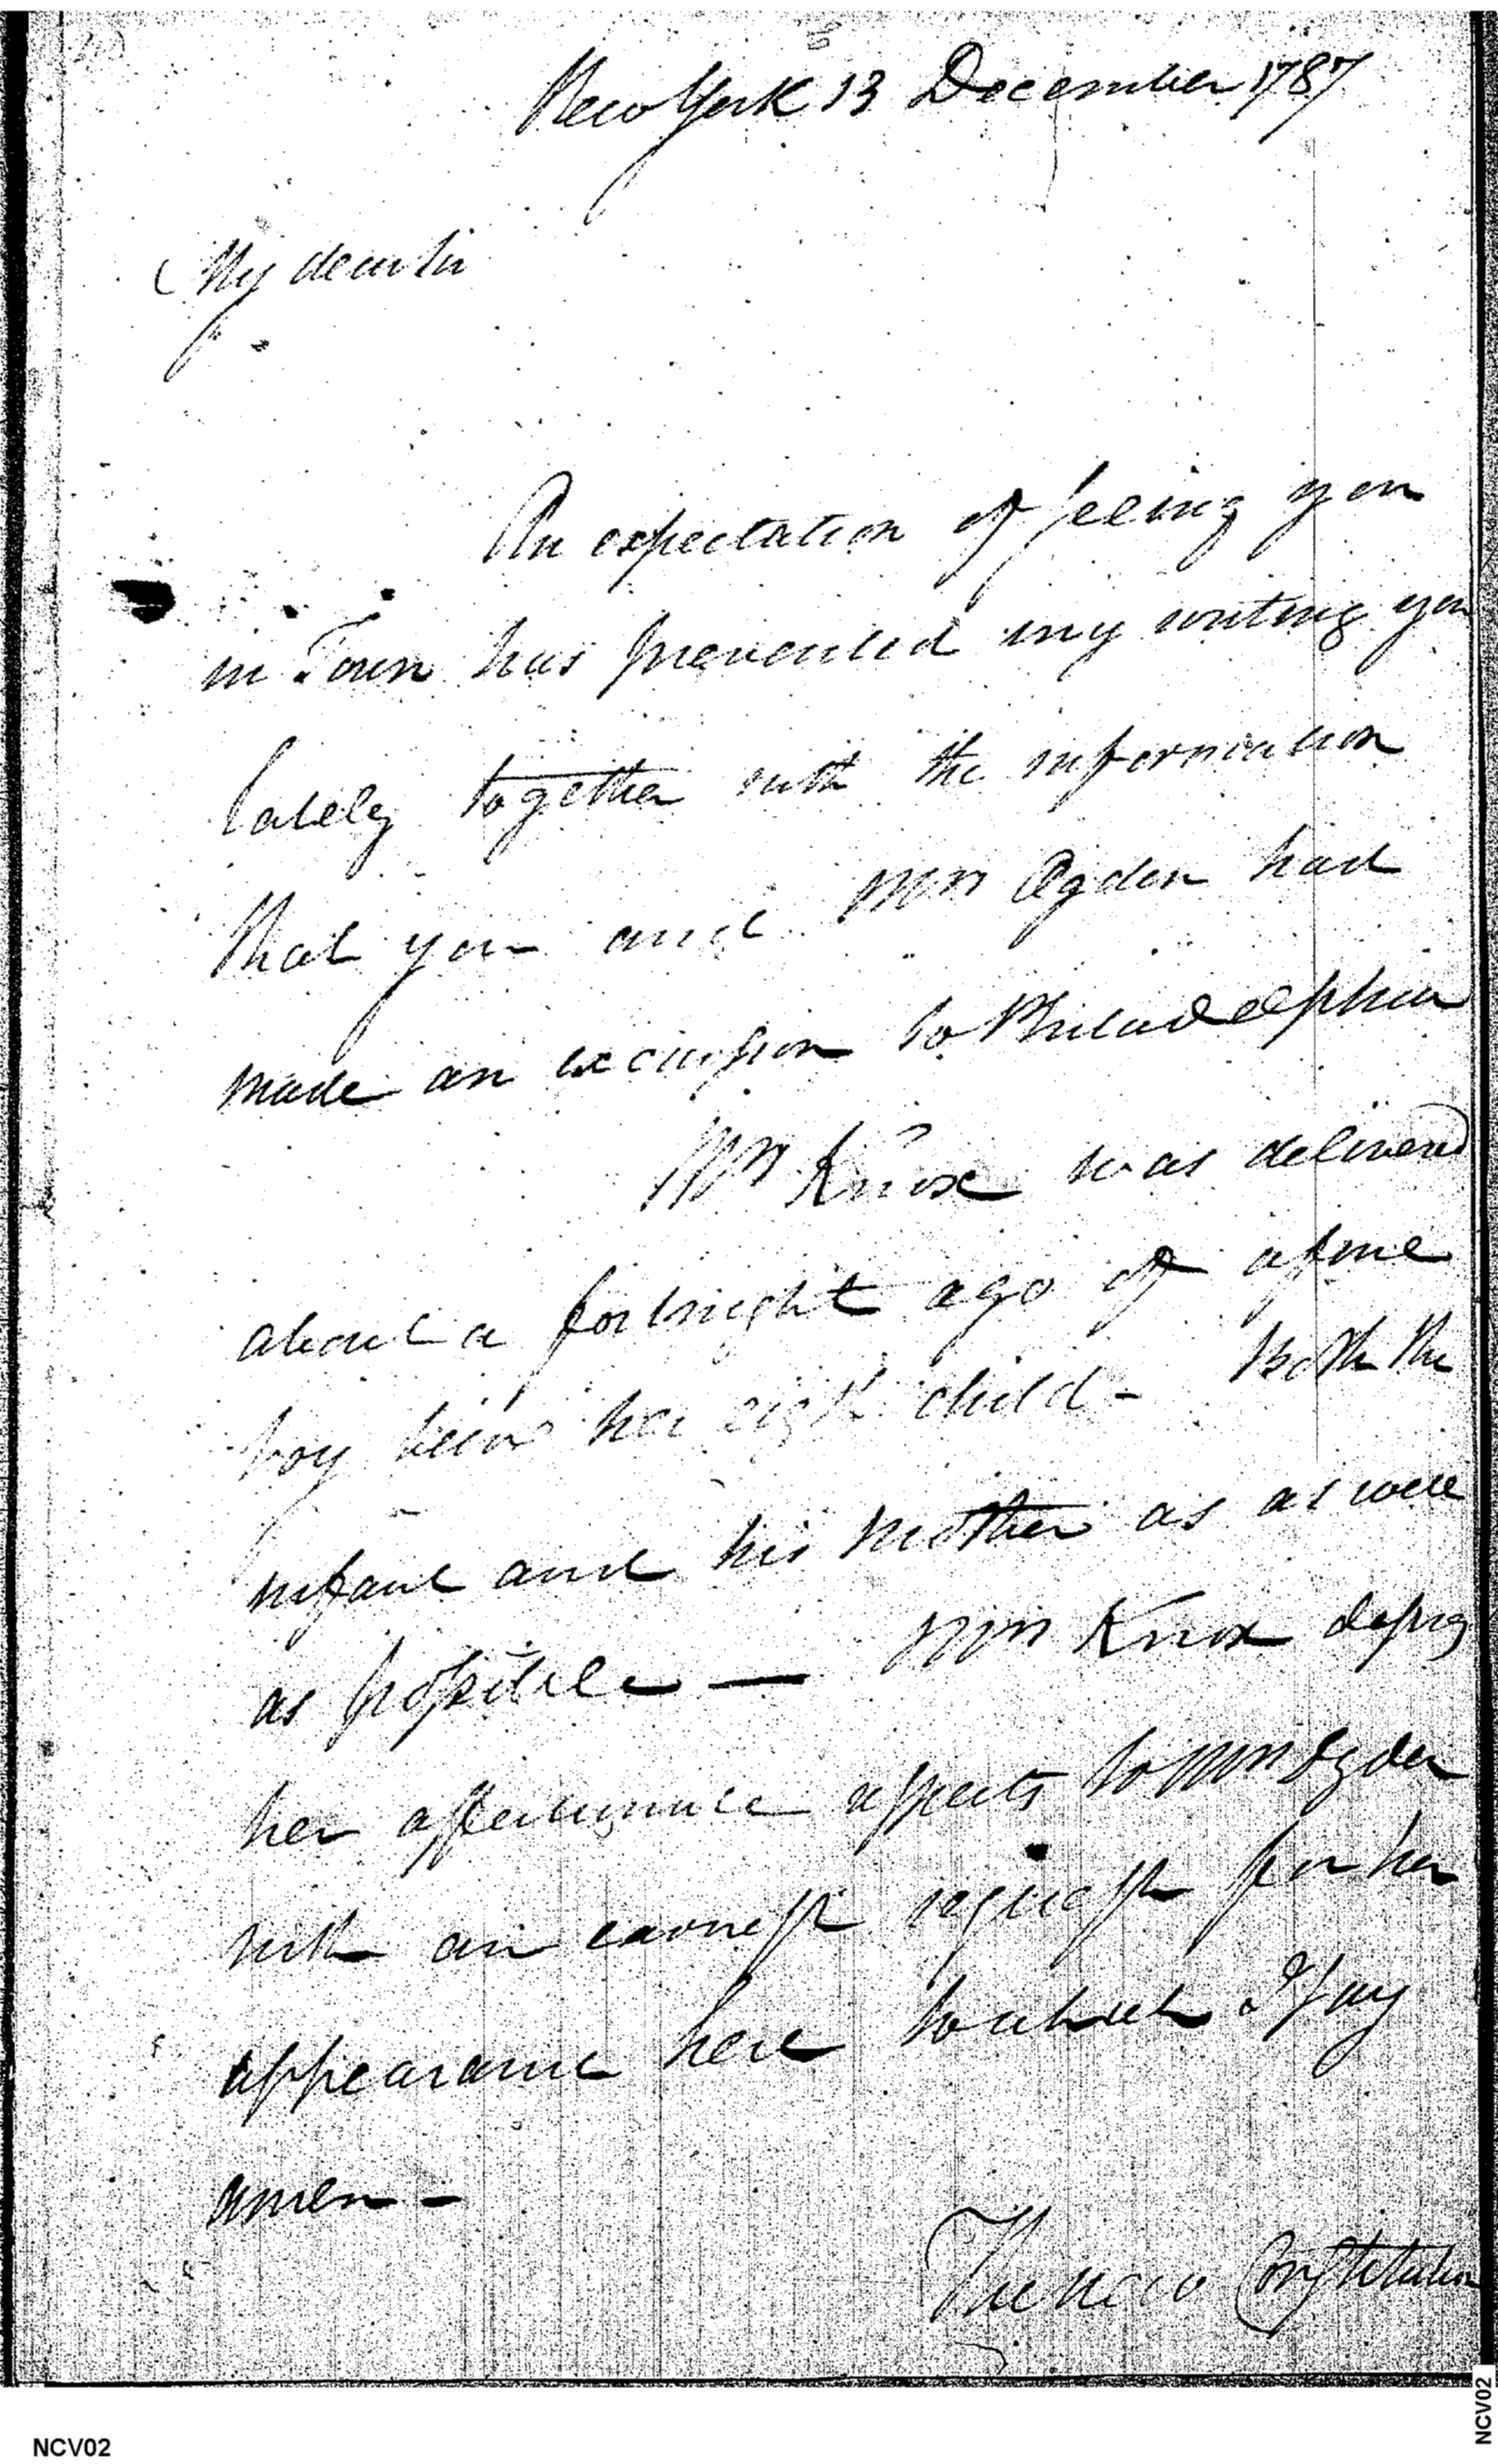 New York 13 December 1787
My dear sir
An expectation of seeing you
in Town has prevented my writing you
lately together with the information
that you and Mrs Ogden had
made an excursion to Philadelphia
Mrs Knox was delivered
about a fortnight ago of a fine
boy being her eighth child - Both the
infant and his mother as as well
as possible —
Mrs Knox
her affectionate respects to Mrs Ogden
with an earnest request for her
appearance here to which I say
amen -
The new Constitution
NCV02
NCV02